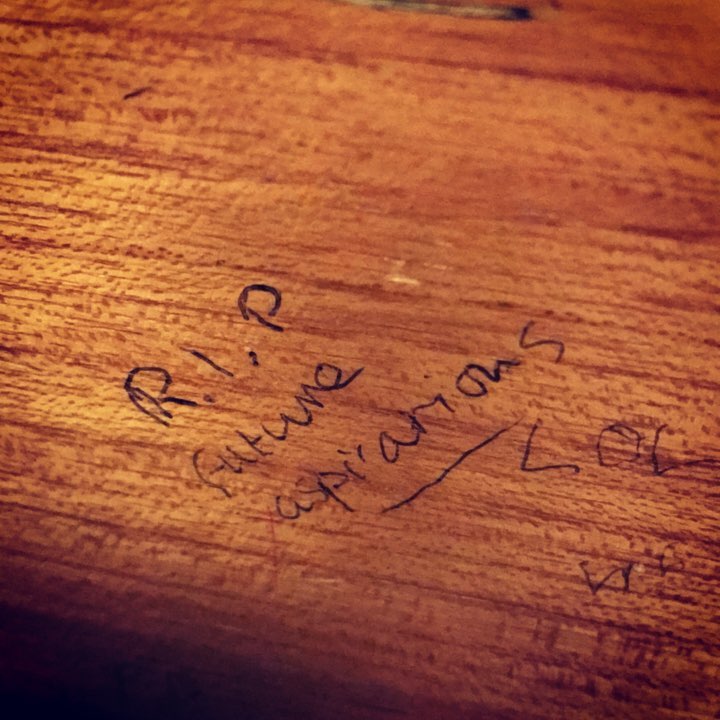 R.I.P
future
aspiarions
LOL